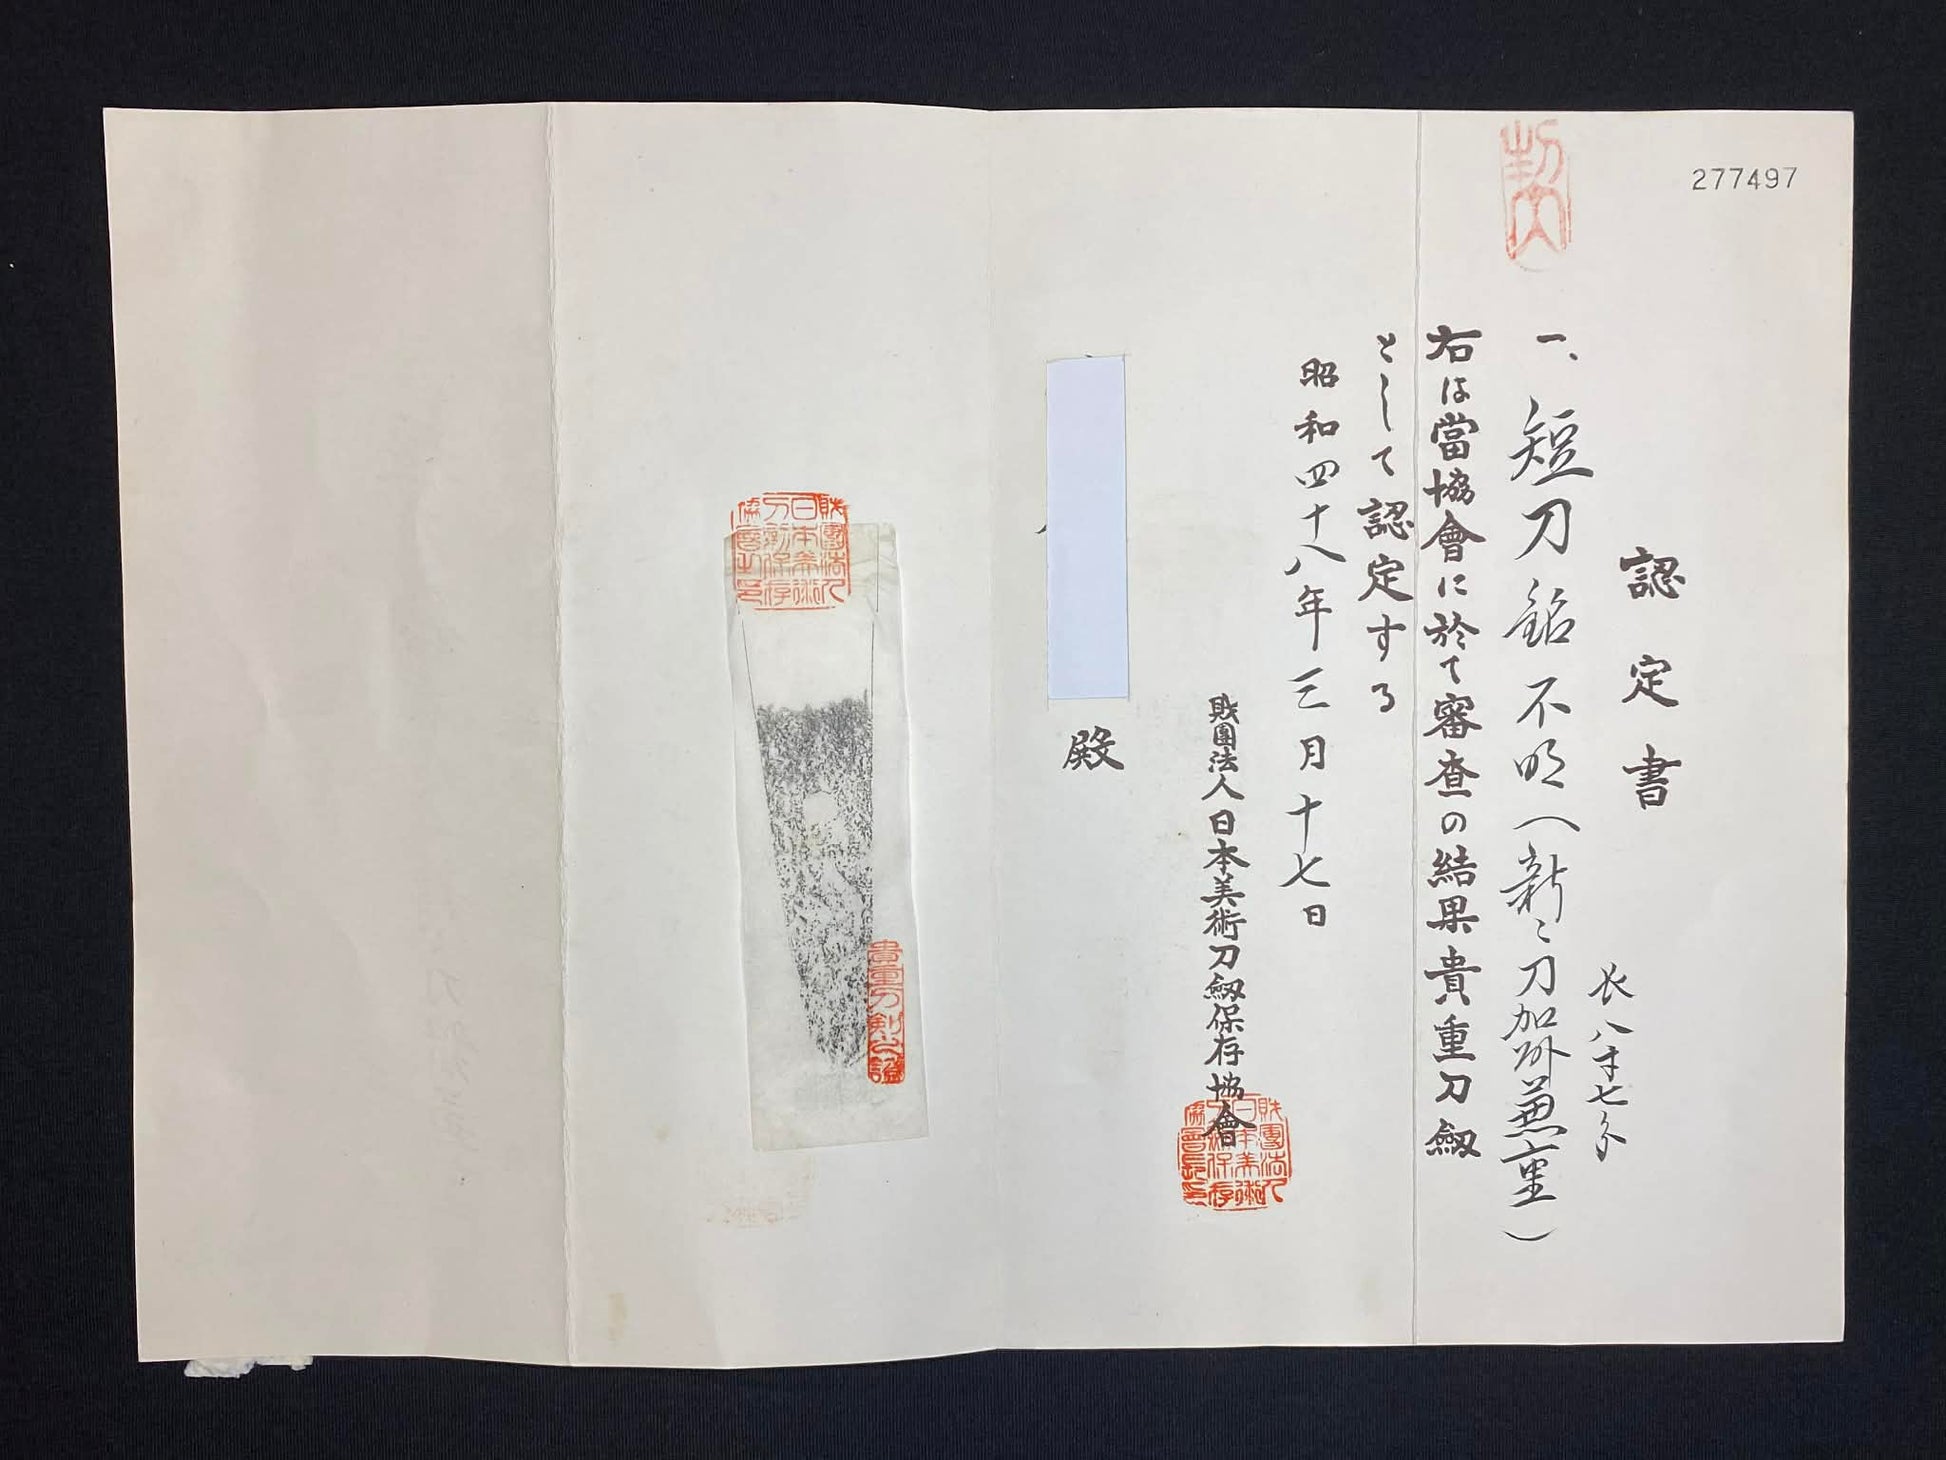 277497
認定書
長八寸七分
一、短刀銘不明(新々刀加州兼重)
右は當協會に於て審査の結果貴重刀劔
として認定する
昭和四十八年三月十七日
財團法人日本美術刀劔保存協會
財團法人日本美術刀劔保存協會長印
殿
財團法人日本美術刀劔保存協會之印
貴重刀剣之證